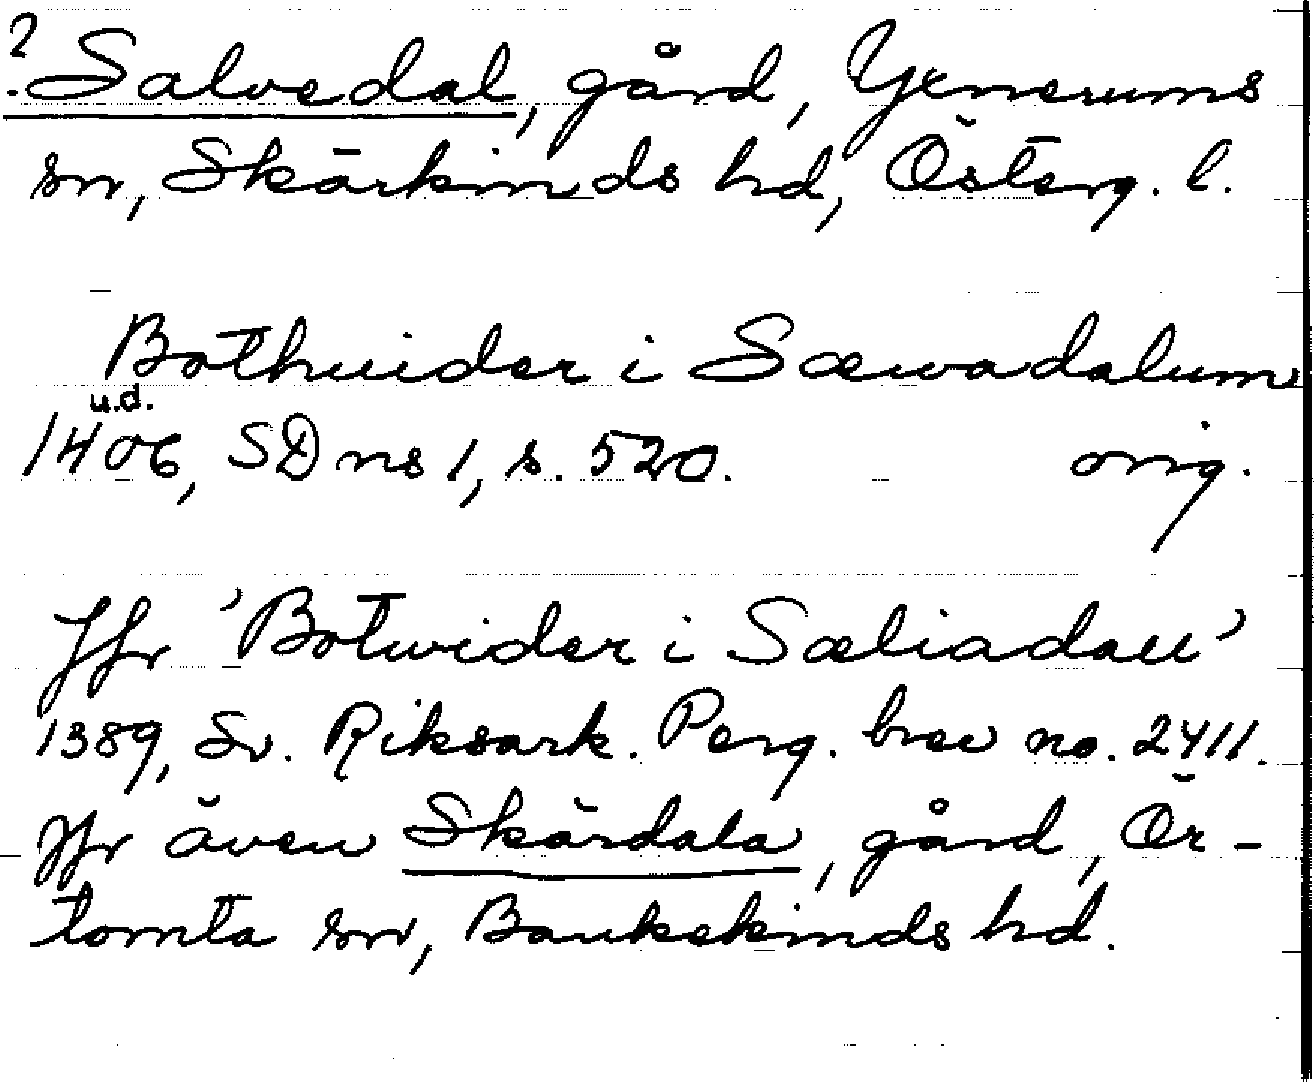 ? Salvedal, gård, Yxnerums
sn, Skärkinds hd, Österg. l.
Bothuider i Sæwadalum
u.d.
1406, SD ns 1, s. 520. orig.
Jfr 'Botwider i Sæliadall'
1389, Sv. Riksark. Perg. brev no. 2411.
Jfr även Skärdala, gård, Ör-
tomta sn, Bankekinds hd.